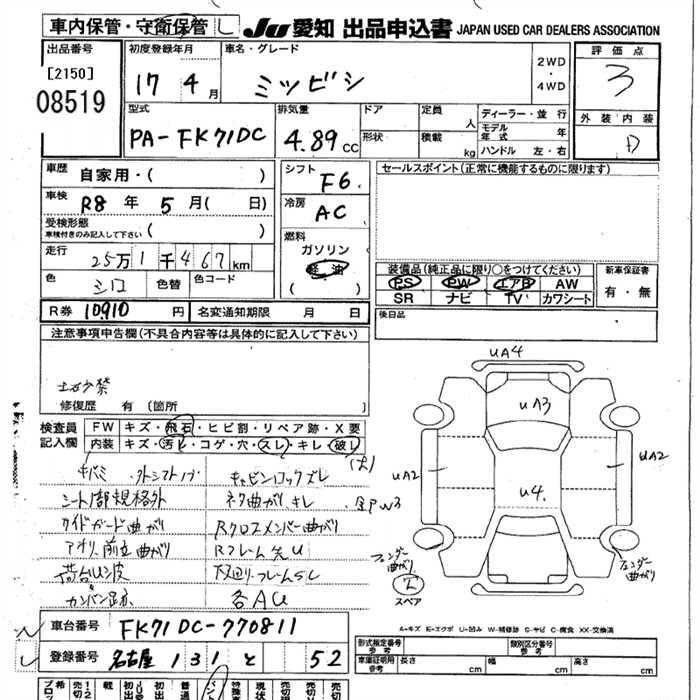 車内保管・守衛保管 し
JU 愛知 出品申込書 JAPAN USED CAR DEALERS ASSOCIATION
出品番号
[2150]
08519
初度登録年月
17 4 月
車名・グレード
ミツビシ
2WD
・
4WD
評価点
3
外装 内装
D
型式
PA-FK71DC
排気量
4.89 cc
ドア
形状
定員
人
積載
kg
ディーラー・並行
モデル年式 年
ハンドル 左・右
車歴 自家用・( )
車検 R8 年 5 月( 日)
受検形態
車検付きのみ記入して下さい ( )
走行 25万1千467km
色 シロ 色替 色コード
シフト F6
冷房 AC
燃料
ガソリン
軽油
( )
セールスポイント(正常に機能するものに限ります)
装備品(純正品に限り○をつけてください)
PS PW エアB AW
SR ナビ TV カワシート
新車保証書
有・無
R券 10910 円 名変通知期限 月 日
後日品
注意事項申告欄(不具合内容等は具体的に記入して下さい)
修復歴 有 (箇所 )
検査員記入欄
FW キズ・飛石・ヒビ割・リペア跡・X要
内装 キズ・汚レ・コゲ・穴・スレ・キレ・破レ
(大)
キバミ 外シフトノブ キャビンロックズレ
シート1部規格外 ネタ曲がり、キレ
サイドガード曲がり Rクロスメンバー曲がり
アオリ、前立曲がり Rフレーム先U
荷台U、波 下廻リ・フレームSし
カンバン跡 各AU
UA4
UA3
UA2 UA2
U4
全P W3
フェンダー曲がり フェンダー曲がり
スペア
A-キズ E-エクボ U-凹み W-補修跡 S-サビ C-腐食 XX-交換済
車台番号 FK71DC-770811
登録番号 名古屋 131 と 52
形式指定番号 類別区分番号
車庫証明用記入 長さ cm 幅 cm 高さ cm